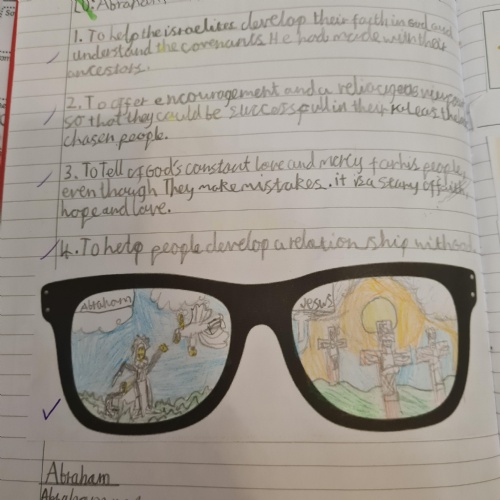 Abraham
1. To help the israelites develop their faith in God and
understand the covenants He had made with their
ancestors.
2. To offer encouragement and a
so that they could be successful in their role as the
chosen people.
3. To Tell of God's constant love and mercy for his people,
even though They make mistakes. it is a story of
hope and love.
4. To help people develop a relation ship with
Abraham
Jesus
Abraham